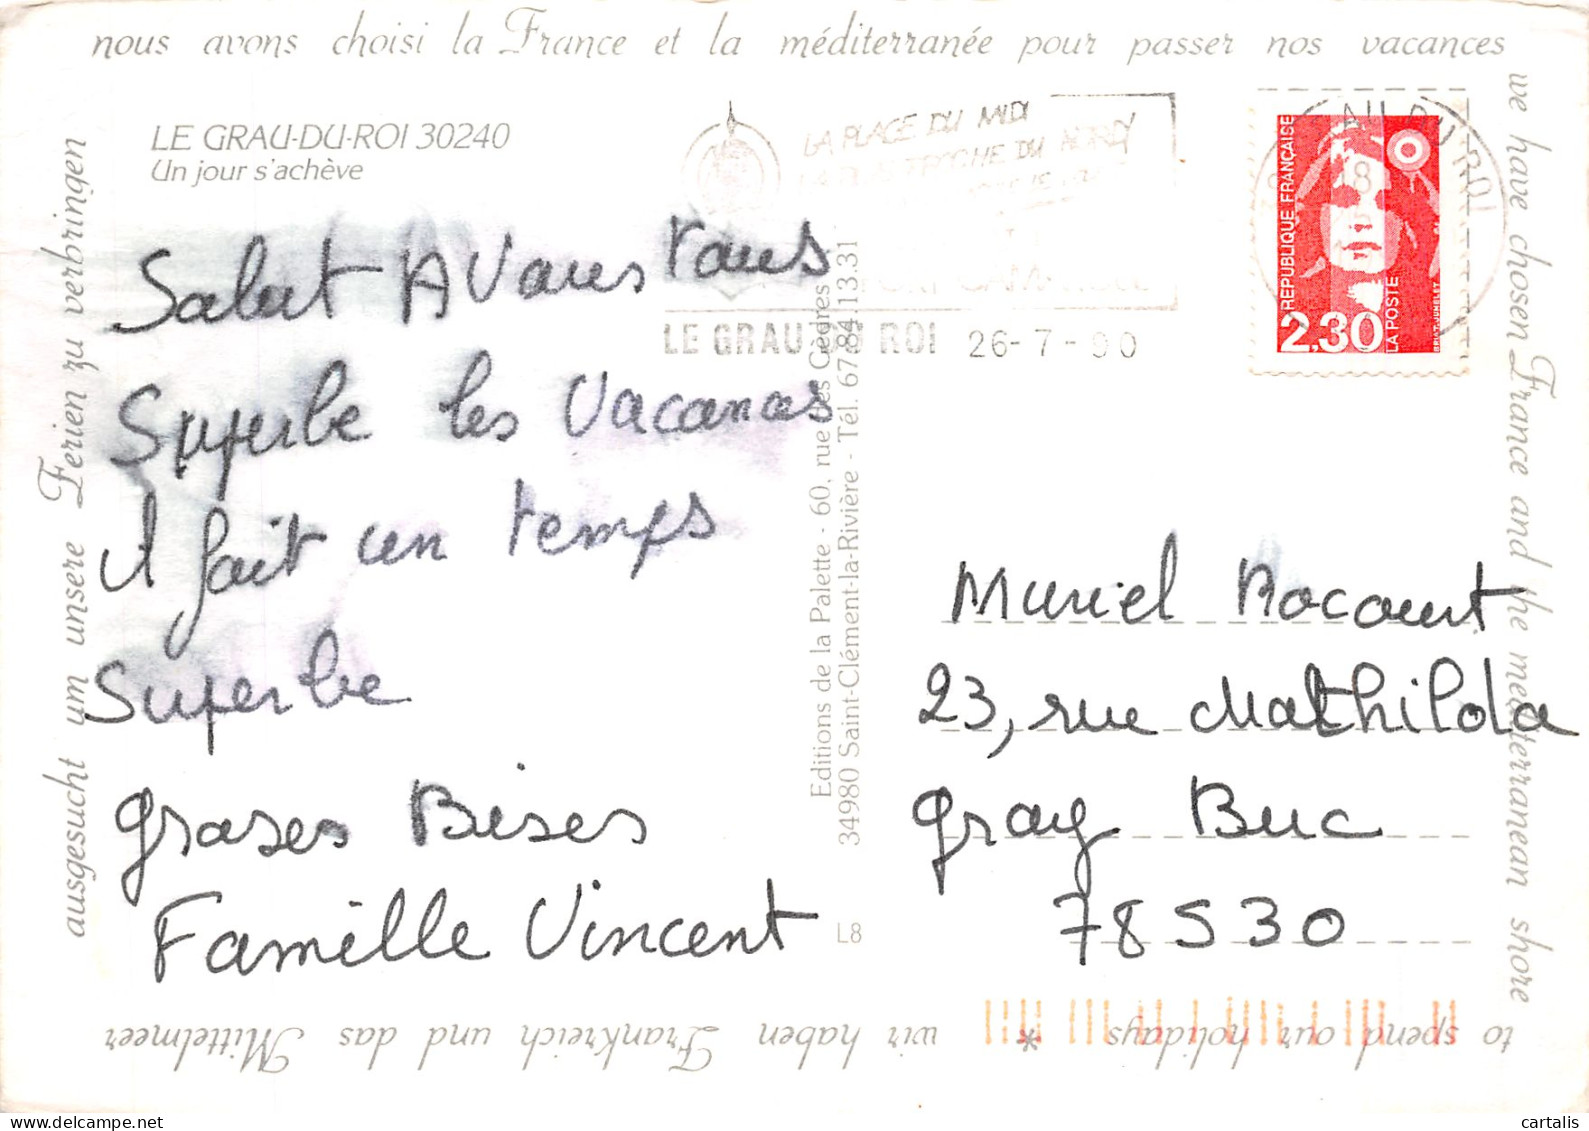 nous avons choisi la France et la méditerranée pour passer nos vacances
we have chosen France and the mediterranean shore
to spend our holidays
wir haben Frankreich und das Mittelmeer
ausgesucht um unsere Ferien zu verbringen
LE GRAU-DU-ROI 30240
Un jour s'achève
LA PLAGE DU MIDI
LA PLUS PROCHE DU NORD
LE GRAU DU ROI 26-7-90
AU DU ROI
REPUBLIQUE FRANÇAISE
2,30
LA POSTE
Salut A Vous Tous
Superbe les Vacances
il fait un temps
Superbe
Grosses Bises
Famille Vincent
Editions de la Palette - 60, rue des Cèdres
34980 Saint-Clément-la-Rivière - Tél. 67.84.13.31
L8
Muriel Rocourt
23, rue Mathilda
Gray Buc
78530
cartalis